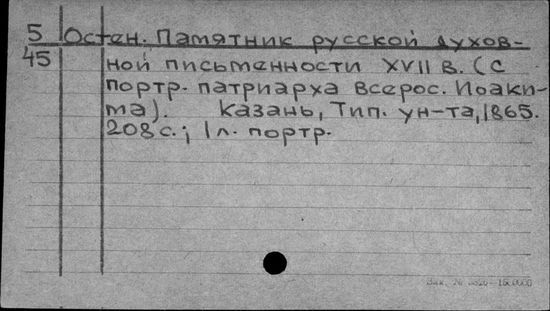 5 Остен. Памятник русской духов-
45 ной письменности XVII в. (с
портр. патриарха Всерос. Иоаки-
ма). Казань, Тип. ун-та, 1865.
208 с.; 1 л. портр.